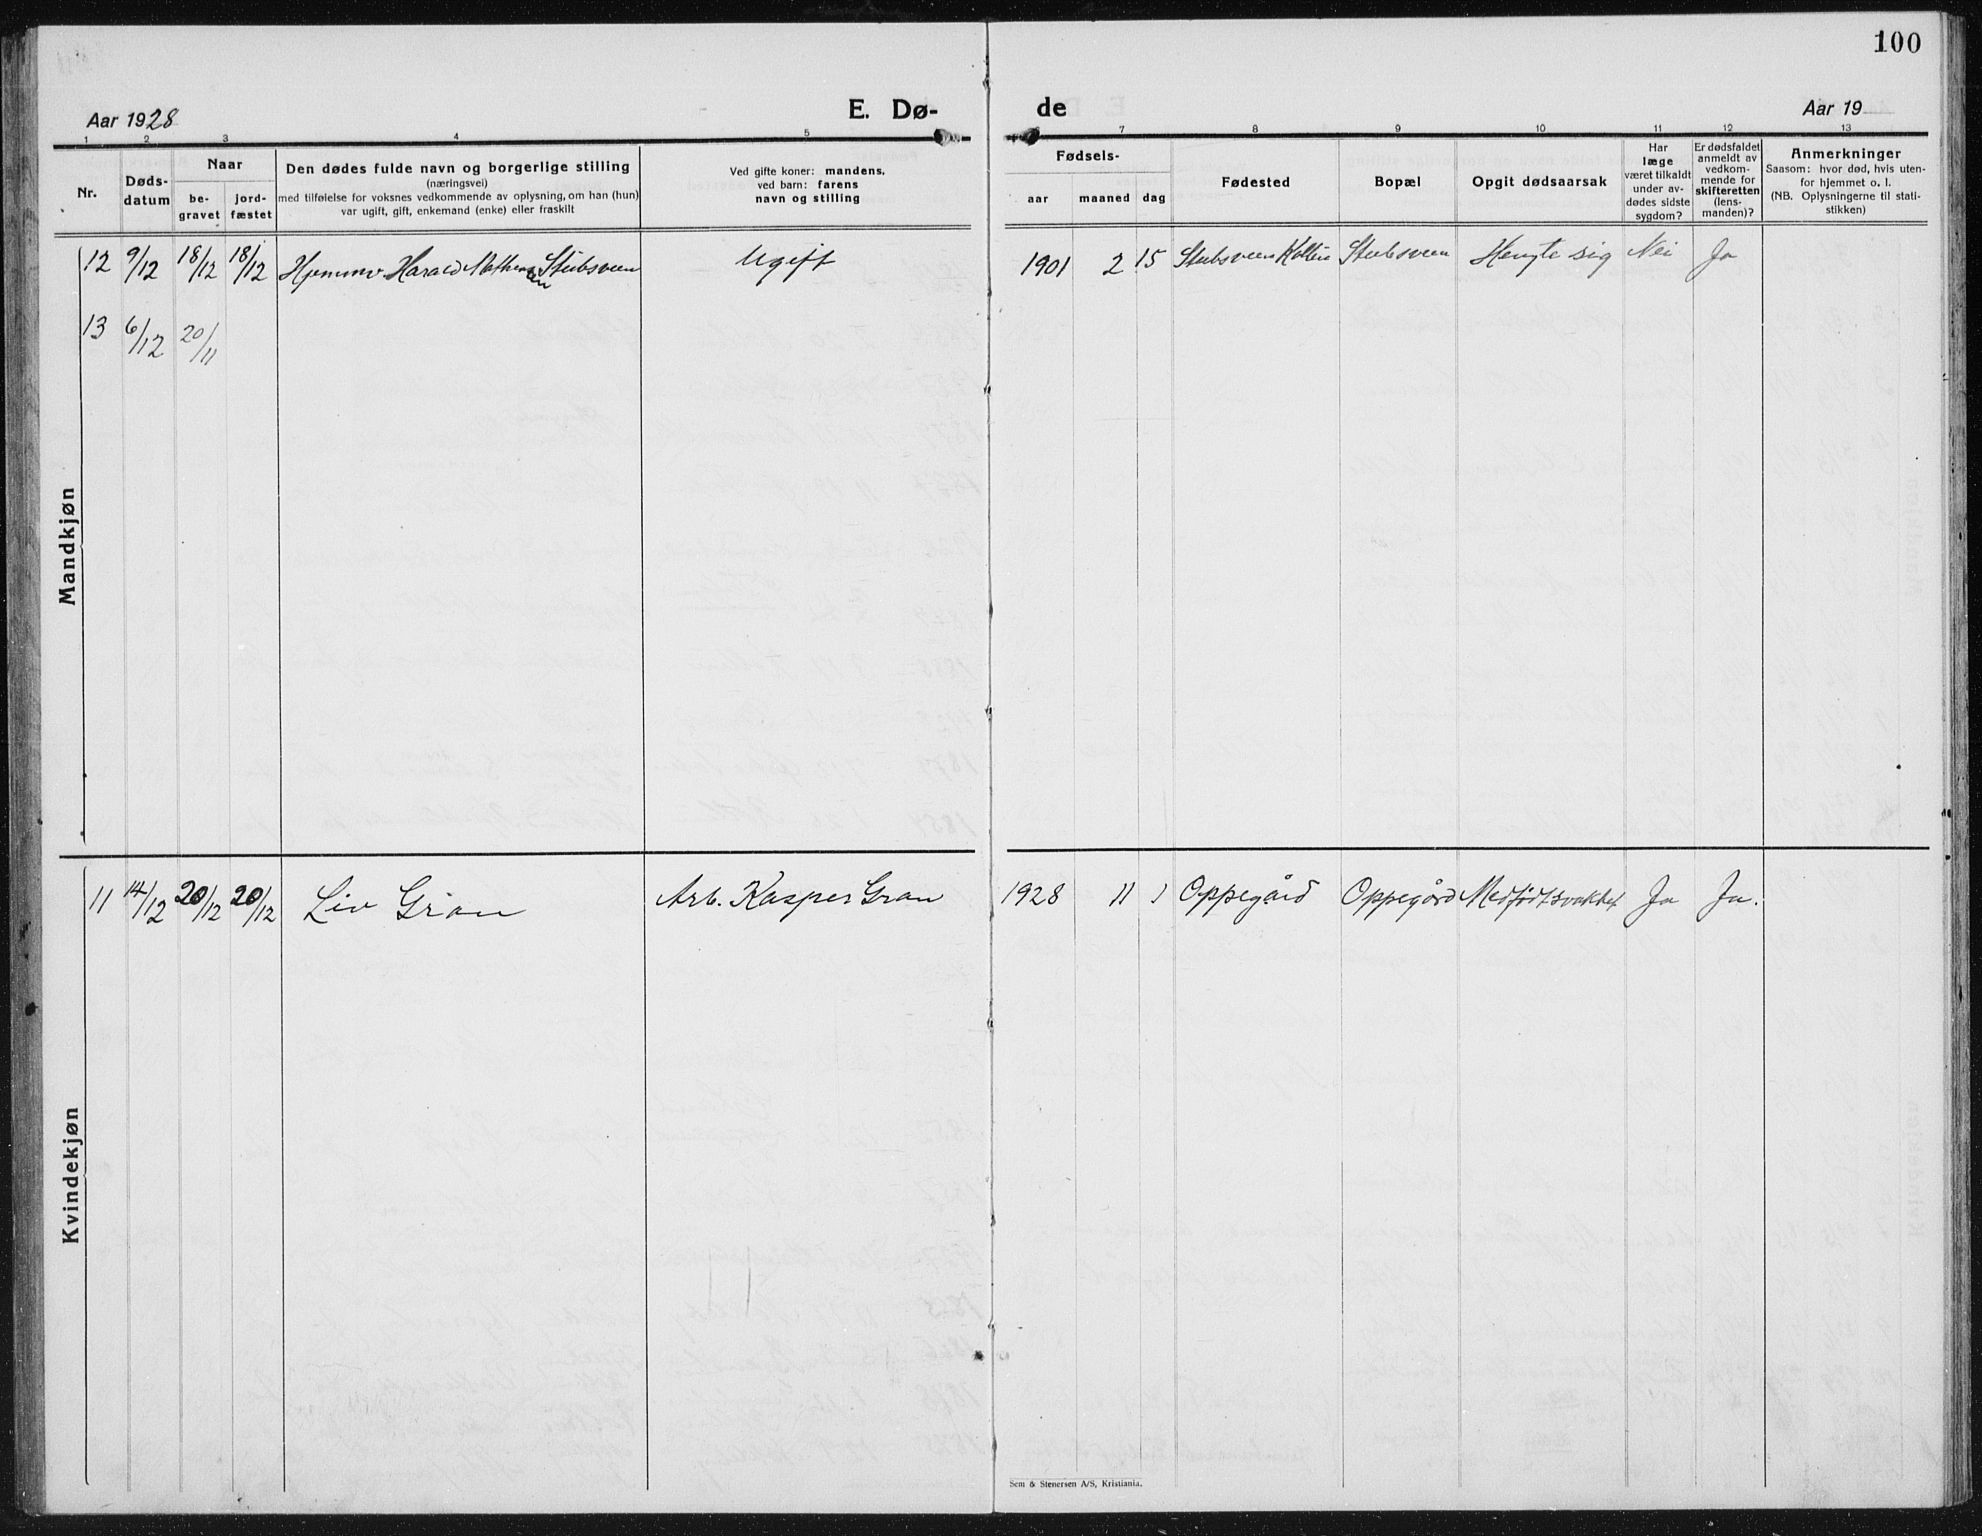 100
Aar 1928 E. Dø- de Aar 19
1 2 3 4 5 6 7 8 9 10 11 12 13
Nr.
Døds-
datum
Naar
be-
gravet
jord-
fæstet
Den dødes fulde navn og borgerlige stilling
(næringsvei)
med tilføielse for voksnes vedkommende av oplysning, om han (hun)
var ugift, gift, enkemand (enke) eller fraskilt
Ved gifte koner: mandens,
ved barn: farens
navn og stilling
Fødsels-
aar maaned dag
Fødested
Bopæl
Opgit dødsaarsak
Har
læge
været tilkaldt
under av-
dødes sidste
sygdom?
Er dødsfaldet
anmeldt av
vedkom-
mende for
skifteretten
(lens-
manden)?
Anmerkninger
Saasom: hvor død, hvis uten-
for hjemmet o. l.
(NB. Oplysningerne til stati-
stikken)
Mandkjøn
12 9/12 18/12 18/12 Hjemmv. Harald Stubsveen Ugift 1901 2 15 Stubsveen Kolbu Stubsveen Hengte sig Nei Ja
13 6/12 20/11
Kvindekjøn
11 14/12 20/12 20/12 Liv Gran Arb. Kasper Gran 1928 11 1 Oppegård Oppegård Medfødt svakhet Ja Ja.
Sem & Stenersen A/S, Kristiania.